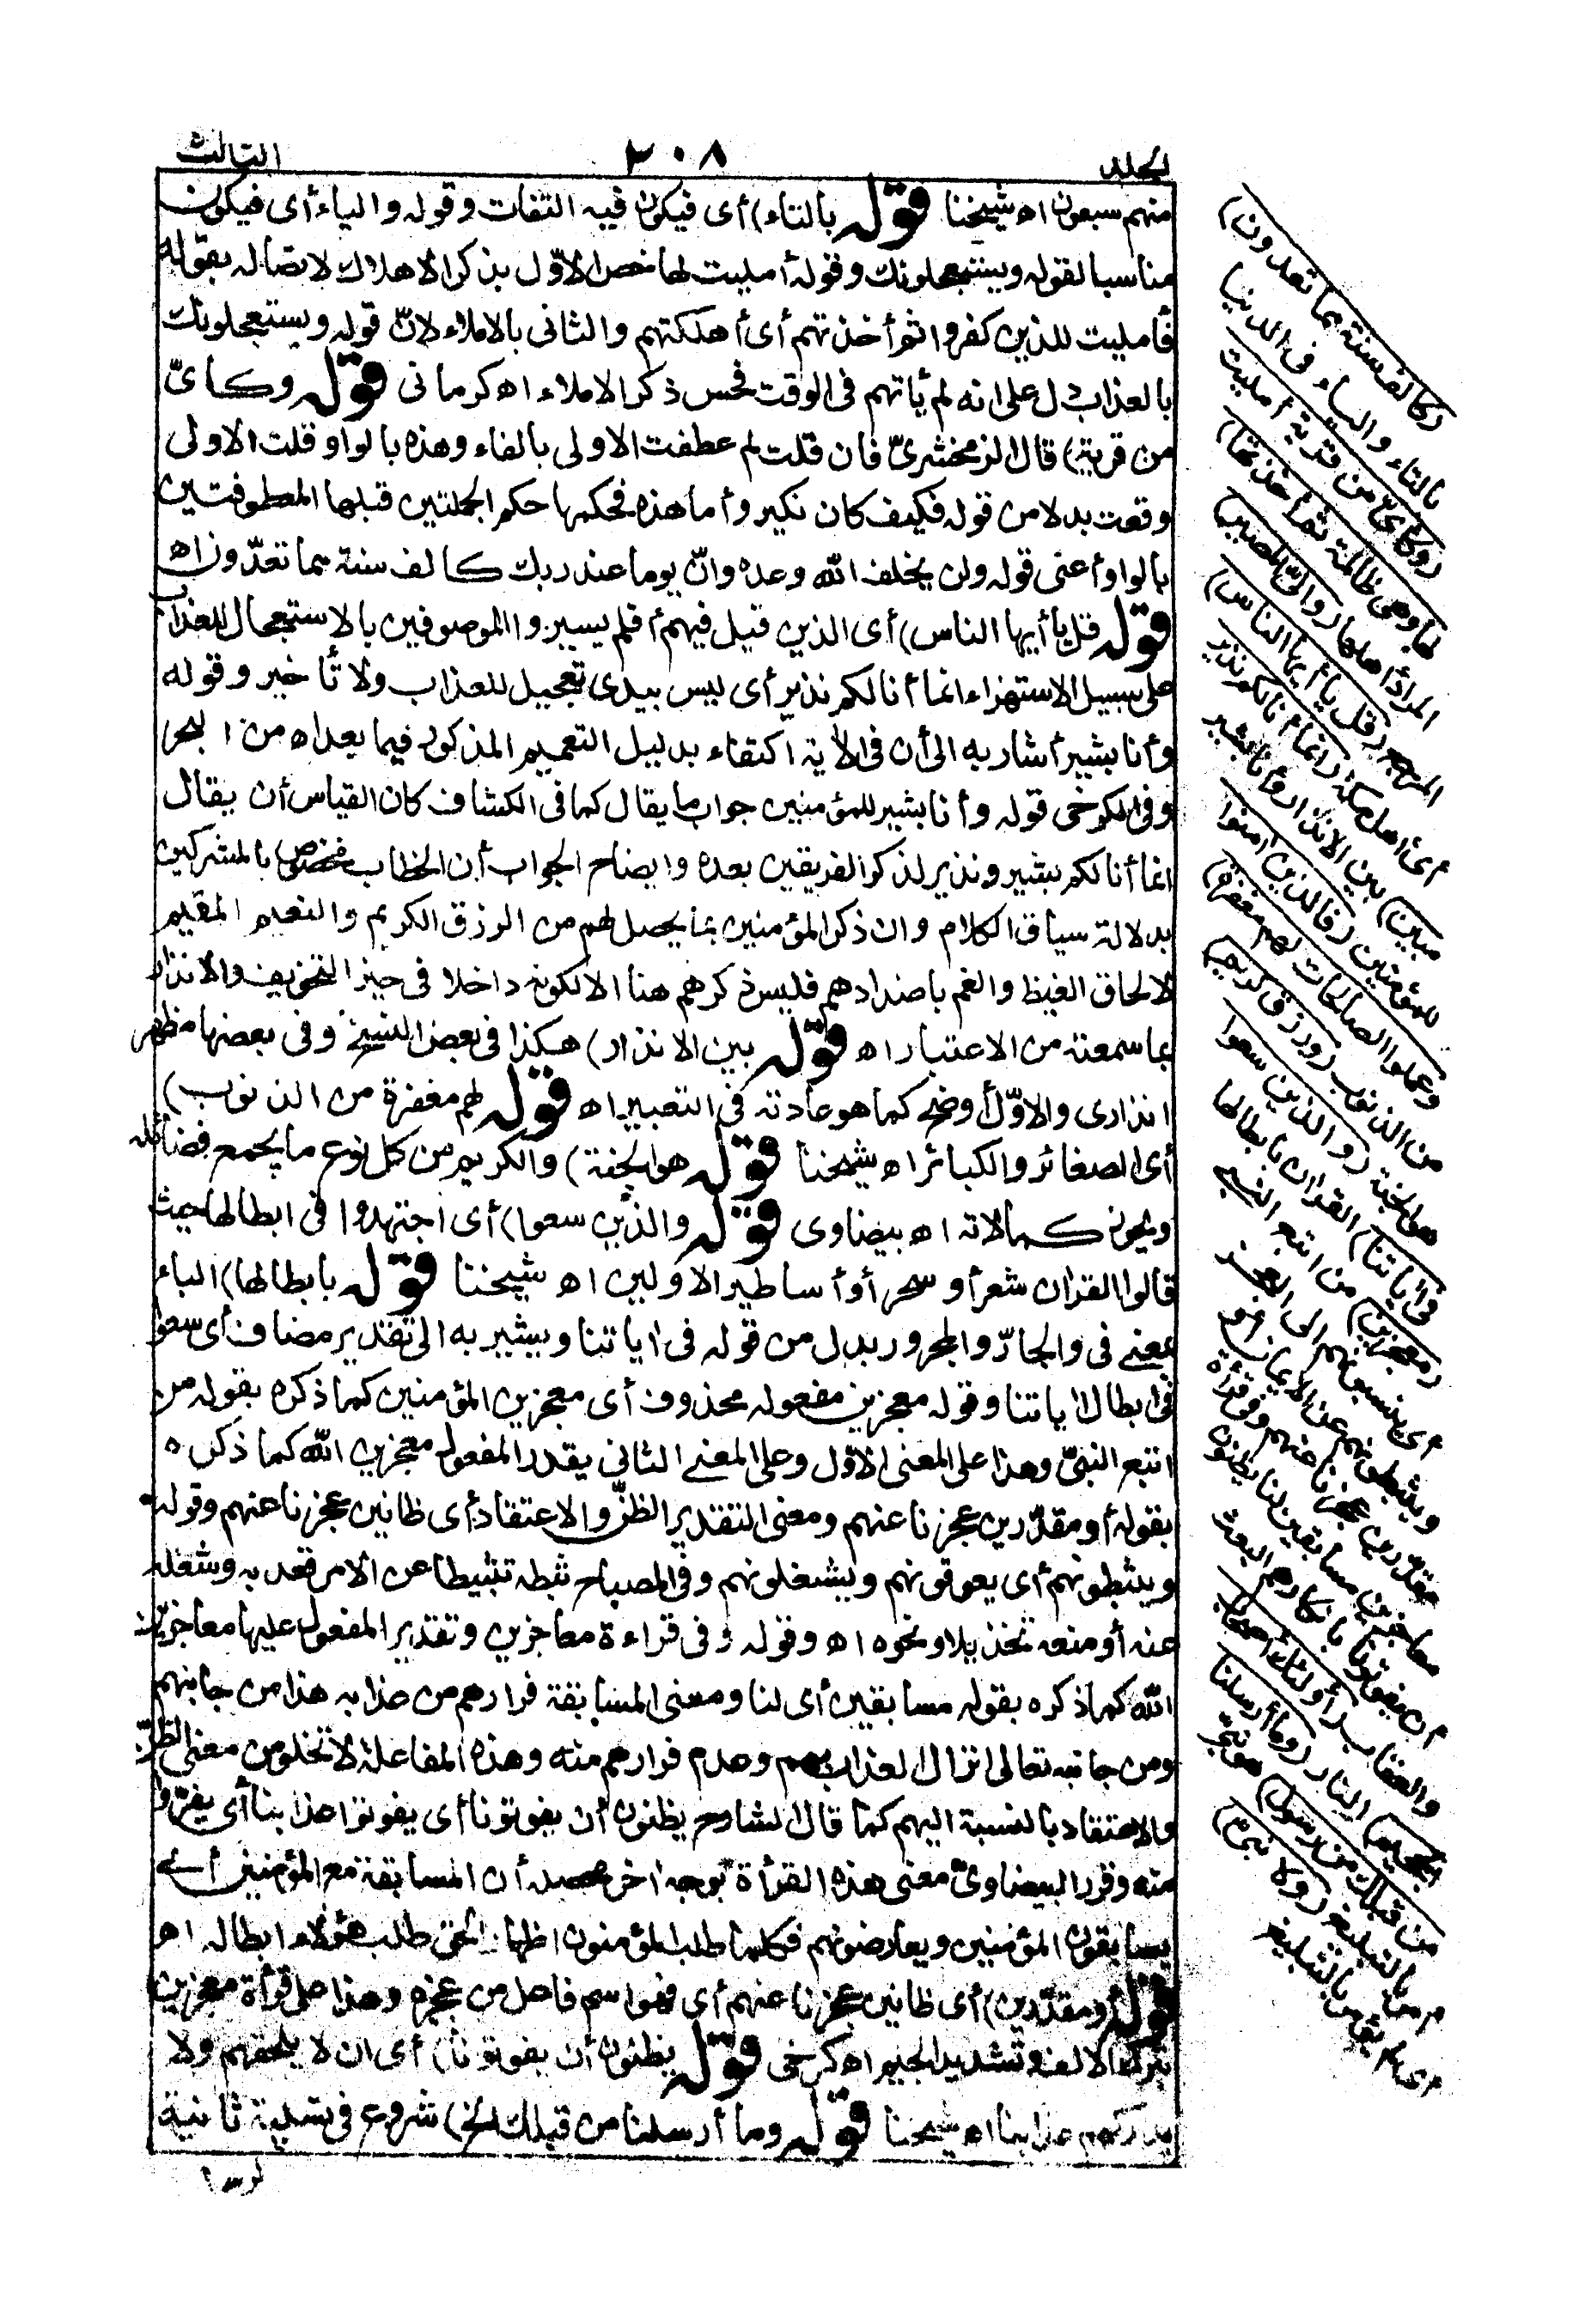 الجلد
٢٠٨
الثالث
منهم سبعون اه شيخنا قوله بالتاء) أى فيكون فيه التفات وقوله والياء أى فيكون
مناسبا لقوله ويستعجلونك وقوله أمليت لها خص الاوّل بذكر الاهلاك لاتصاله بقوله
فأمليت للذين كفروا ثم أخذتهم أى أهلكتهم والثانى بالاملاء لانّ قوله ويستعجلونك
بالعذاب دل على انه لم يأتهم فى الوقت فحسن ذكر الاملاء اه كرمانى قوله وكأىّ
من قرية) قال الزمخشرىّ فان قلت لم عطفت الاولى بالفاء وهذه بالواو قلت الاولى
وقعت بدلا من قوله فكيف كان نكير وأما هذه فحكمها حكم الجملتين قبلها المعطوفتين
بالواو أعنى قوله ولن يخلف الله وعده وانّ يوما عند ربك كالف سنة مما تعدّون اه
قوله قل يا أيها الناس) أى الذين قيل فيهم أفلم يسيروا الموصوفين بالاستعجال للعذاب
على سبيل الاستهزاء انما أنا لكم نذير أى ليس بيدى تعجيل للعذاب ولا تأخير وقوله
وأنا بشير أشار به الى أن فى الأية اكتفاء بدليل التعميم المذكور فيما بعد اه من البحر
وفى الكرخى قوله وأنا بشير للمؤمنين جواب ما يقال كما فى الكشاف كان القياس أن يقال
انما أنا لكم بشير ونذير لذكر الفريقين بعده وايضاح الجواب أن الخطاب مخصوص بالمشركين
بدلالة سياق الكلام وان ذكر المؤمنين بما يحصل لهم من الرزق الكريم والنعيم المقيم
لالحاق الغيظ والغم باضدادهم فليس ذكرهم هنا الا لكونه داخلا فى حيز التخويف والانذار
بما سمعته من الاعتبار اه قوله بين الانذار) هكذا فى بعض النسخ وفى بعضها مظهر
انذارى والاوّل أوضح كما هو عادته فى التعبير اه قوله لهم مغفرة من الذنوب)
أى الصغائر والكبائر اه شيخنا قوله هو الجنة) والكريم من كل نوع ما يجمع فضائله
ويحوز كمالاته اه بيضاوى قوله والذين سعوا) أى اجتهدوا فى ابطالها حيث
قالوا القرآن شعر أو سحر أو أساطير الاولين اه شيخنا قوله بابطالها) الباء
بمعنى فى والجارّ والمجرور بدل من قوله فى اياتنا ويشير به الى تقدير مضاف أى سعوا
فى ابطال اياتنا وقوله معجزين مفعوله محذوف أى معجزين المؤمنين كما ذكره بقوله من
اتبع النبىّ وهذا على المعنى الاوّل وعلى المعنى الثانى يقدر المفعول معجزين الله كما ذكره
بقوله أو مقدّرين عجزنا عنهم ومعنى التقدير الظنّ والاعتقاد أى ظانين عجزنا عنهم وقوله
ويثبطونهم أى يعوقونهم ويشغلونهم وفى المصباح ثبطه تثبيطا عن الامر قعد به وشغله
عنه أو منعه تخذيلا ونحوه اه وقوله وفى قراءة معاجزين وتقدير المفعول عليها معاجزين
الله كما ذكره بقوله مسابقين أى لنا ومعنى المسابقة فرارهم من عذابه هذا من جانبهم
ومن جانبه تعالى انزال العذاب بهم وعدم فرارهم منه وهذه المفاعلة لا تخلو من معنى الظنّ
والاعتقاد بالنسبة اليهم كما قال الشارح يظنون أن يفوتونا أى يفوتوا عذابنا أى يفرّوا
منه وقرر البيضاوىّ معنى هذه القرأة بوجه اخر محصله أن المسابقة مع المؤمنين أى
يسابقون المؤمنين ويعارضونهم فكلما طلب المؤمنون اظهار الحق طلب هؤلاء ابطاله اه
قوله أو مقدّرين) أى ظانين عجزنا عنهم أى فهو اسم فاعل من عجزه وهذا على قرأة معجزين
بترك الالف وتشديد الجيم اه كرخى قوله يظنون أن يفوتونا) أى ان لا يلحقهم ولا
يدركهم عذابنا اه شيخنا قوله وما أرسلنا من قبلك الخ) شروع فى تسلية ثانية
(كالف سنة مما تعدون)
بالتاء والياء فى الدنيا
(وكأىّ من قرية أمليت
لها وهى ظالمة ثم أخذتها)
المراد أهلها (والىّ المصير)
المرجع (قل يا أيها الناس)
أى أهل مكة (انما أنا لكم نذير
مبين) بين الانذار وأنا بشير
للمؤمنين (فالذين امنوا
وعملوا الصالحات لهم مغفرة)
من الذنوب (ورزق كريم)
هو الجنة (والذين سعوا
فى اياتنا) القران بابطالها
(معجزين) من اتبع النبى
أى ينسبونهم الى العجز
ويثبطونهم عن الايمان أو
مقدرين عجزنا عنهم وفى قرأة
معاجزين مسابقين لنا يظنون
أن يفوتونا بانكارهم البعث
والعقاب (أولئك أصحاب
الجحيم) النار (وما أرسلنا
من قبلك من رسول) هو نبى
أمر بالتبليغ (ولا نبى)
أى لم يؤمر بالتبليغ